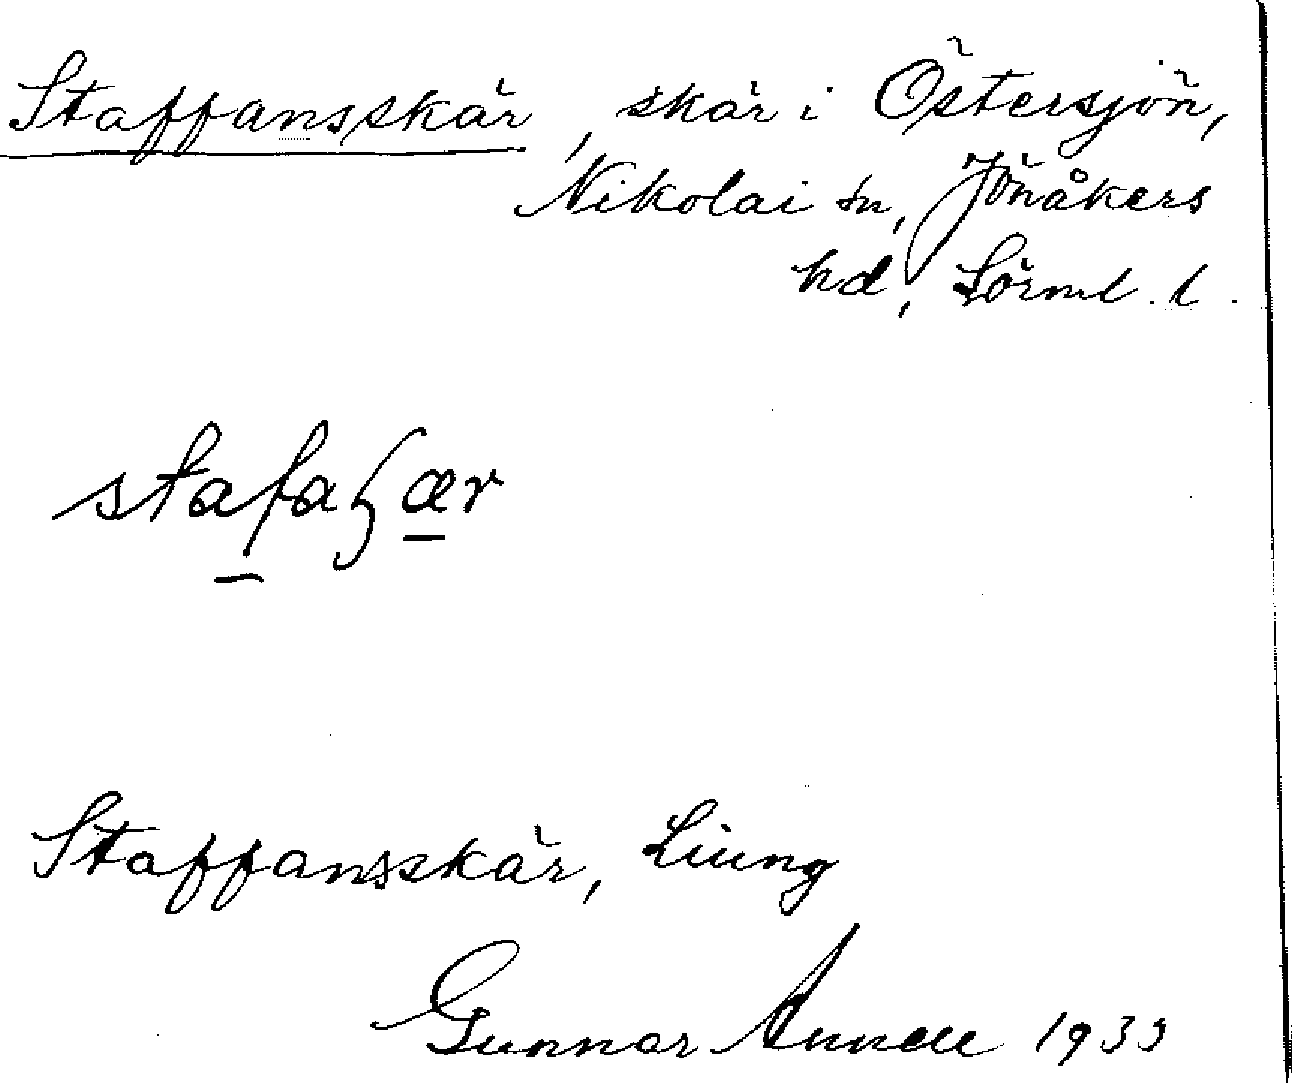 Staffansskär, skär i Östersjön,
Nikolai sn, Jönåkers
hd, Sörml. l.
stafaʃær
Staffansskär, Liung
Gunnar Annell 1933